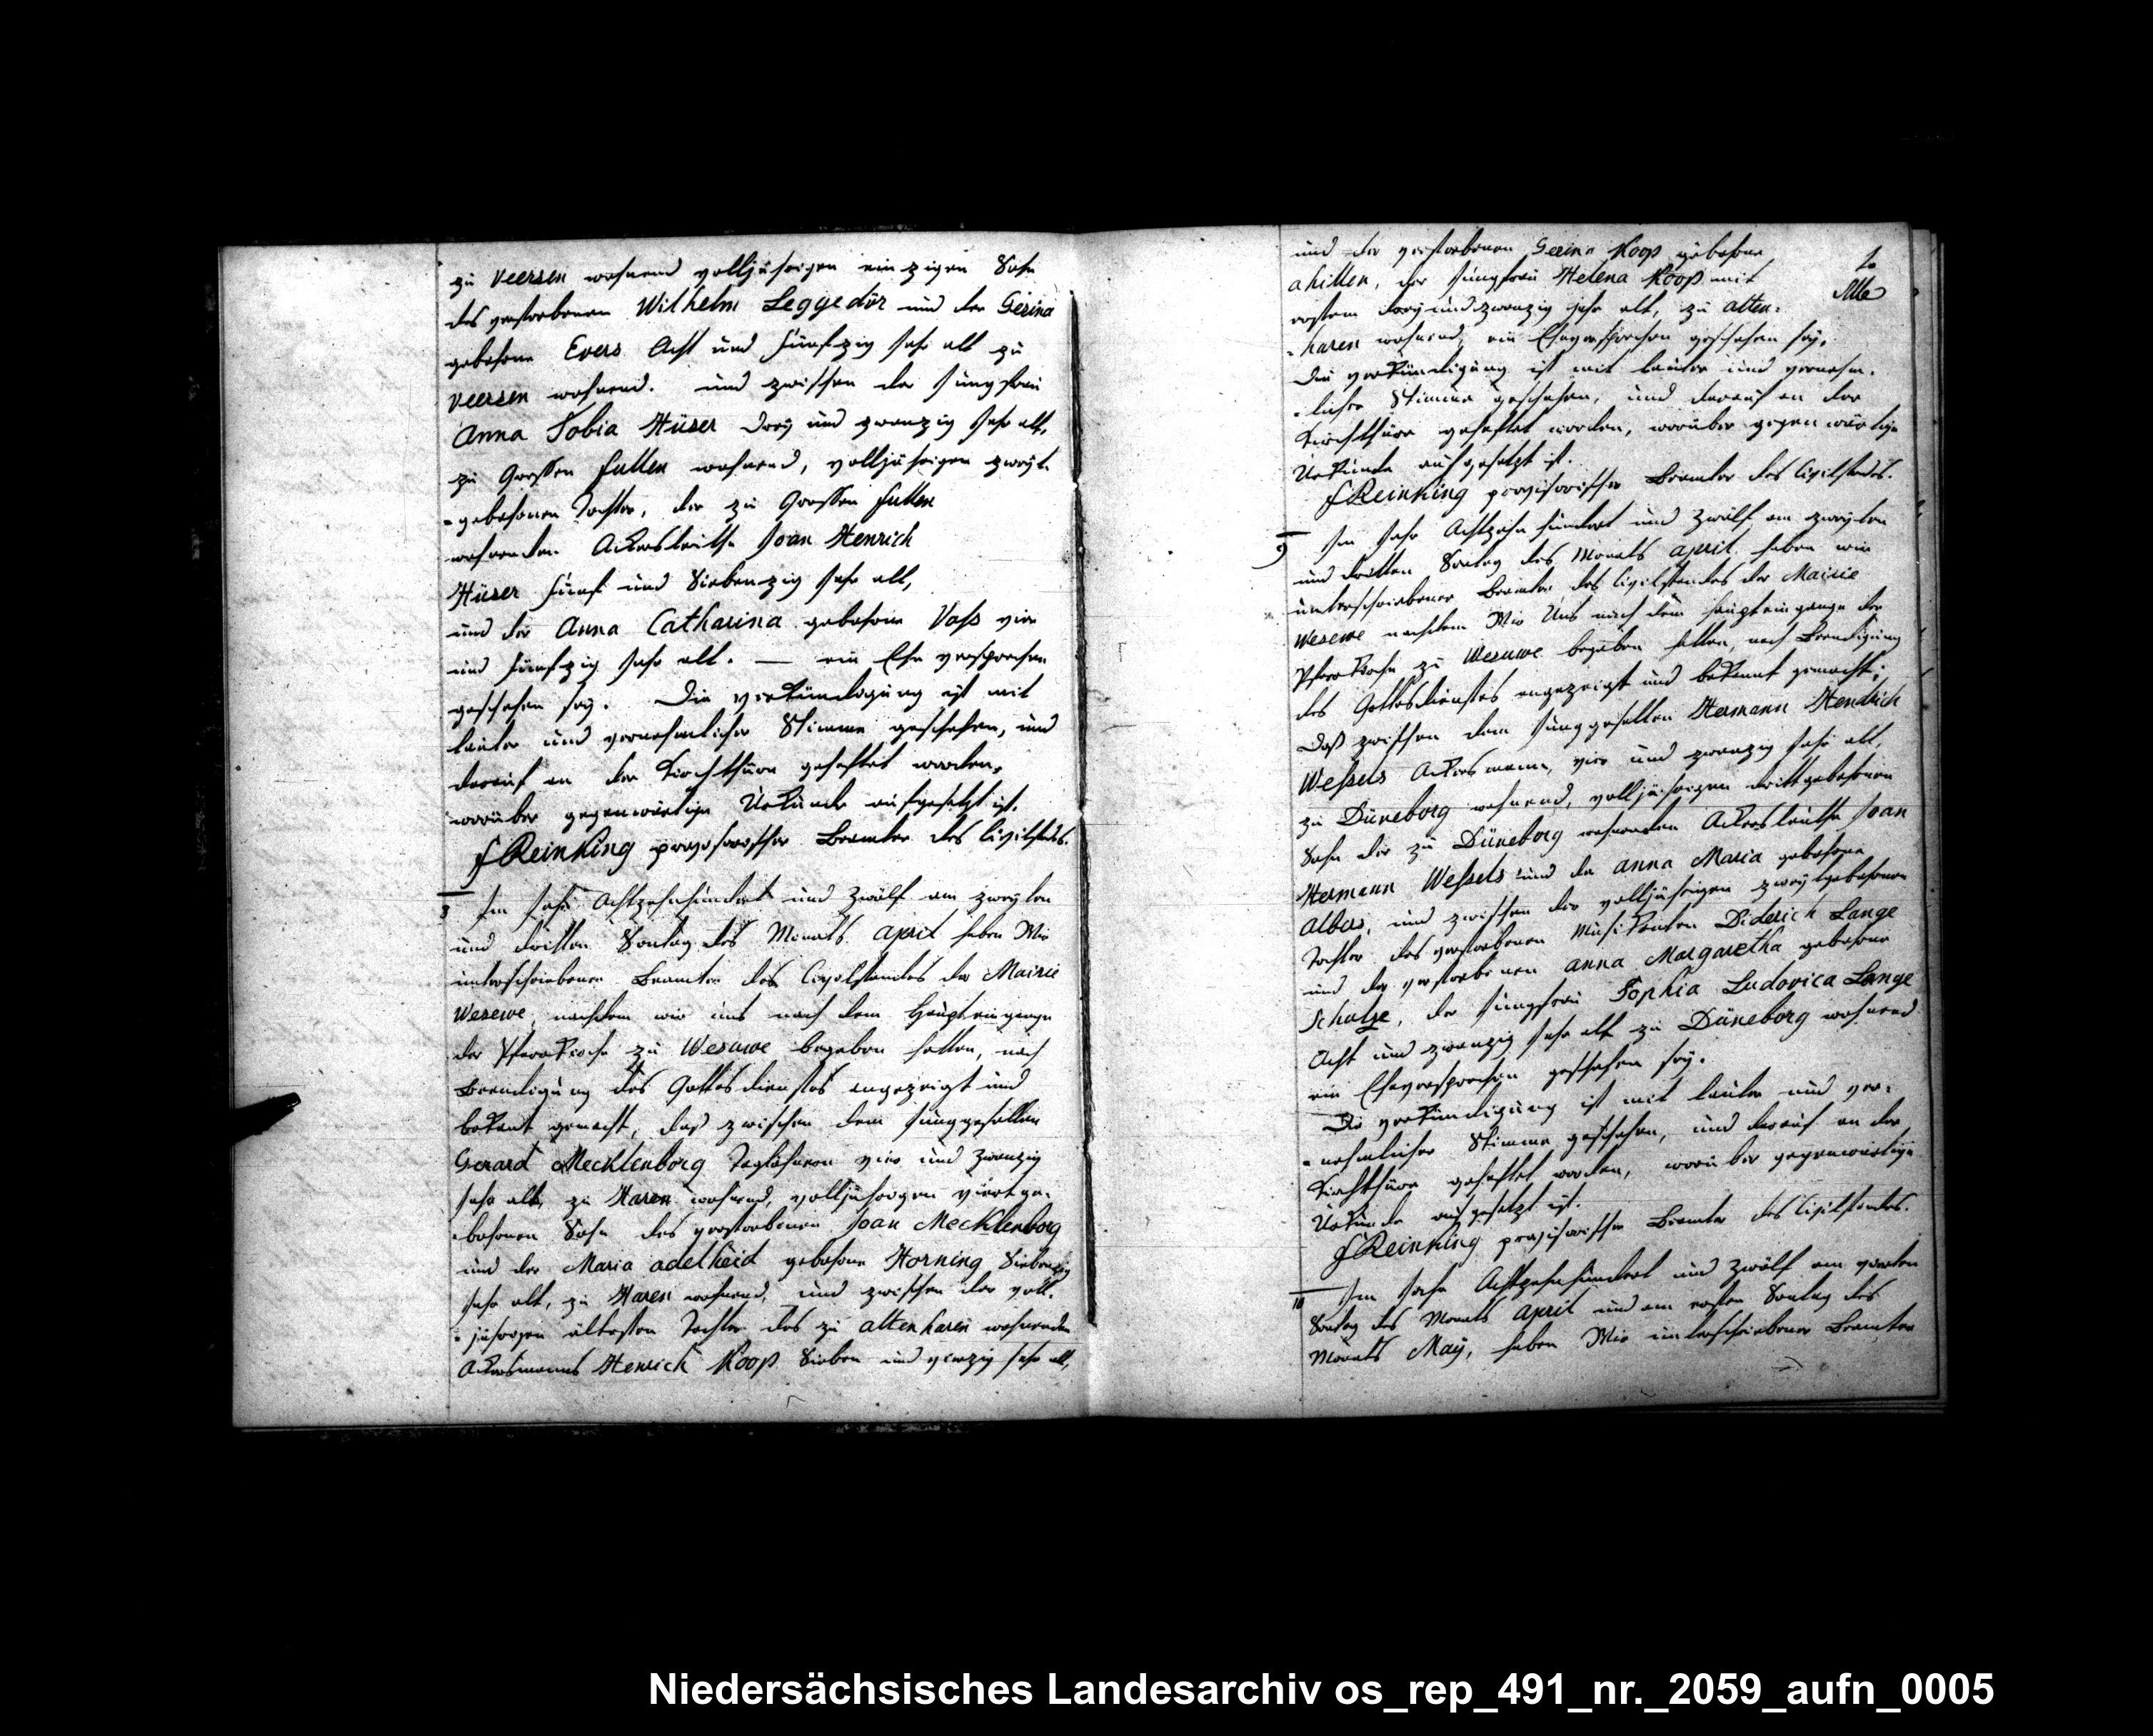 zu Veersen wohnend volljährigen einzigen Sohn
des verstorbenen Wilhelm Leggedör und der Gesina
gebohrne Evers Acht und Fünfzig Jahr alt zu
Veersen wohnend. und zwischen der Jungfrau
Anna Tobia Hüser Drey und zwanzig Jahr alt,
zu Grossen Fullen wohnend, volljährigen zweyt-
-gebohrnen Tochter, der zu Grossen Fullen
wohnenden Ackersleuthe Joan Henrich
Hüser Fünf und Siebenzig Jahr alt,
und der Anna Catharina gebohrne Voss vier
und Fünfzig Jahr alt. — ein Ehe versprechen
geschehen sey. Die verkündigung ist mit
lauter und vernehmlicher Stimme geschehen, und
darauf an der Kirchthüre geheftet worden,
worüber gegenwärtige Urkunde aufgesetzt ist.
F Reinking provisorischer Beamter des Civilstands.
8 Im Jahr Achtzehnhundert und Zwölf am zweyten
und dritten Sontag des Monats April haben Wir
unterschriebener Beamter des Civilstandes der Mairie
Wesuwe, nachdem wir uns nach dem Haupteingange
der Pfarrkirche zu Wesuwe begeben hatten, nach
Beendigung des Gottesdienstes angezeigt und
bekant gemacht, daß zwischen dem Junggesellen
Gerard Mecklenborg Taglöhner vier und zwanzig
Jahr alt, zu Haren wohnend, volljährigen viertge-
-bohrnen Sohn des verstorbenen Joan Mecklenborg
und der Maria adelheid gebohrne Horning Siebenzig
Jahr alt, zu Haren wohnend, und zwischen der voll-
-jährigen ältesten Tochter des zu altenharen wohnenden
Ackersmanns Henrich Koop Sieben und vierzig Jahr alt,
und der verstorbenen Gesina Koop gebohrne
ahillen, der Jungfrau Helena Koop mit
erstem drey und zwanzig Jahr alt, zu alten-
-haren wohnend, ein Eheversprechen geschehen sey.
Die verkündigung ist mit lauter und vernehm-
-licher Stimme geschehen, und darauf an der
Kirchthüre geheftet worden, worüber gegenwärtige
Urkunde aufgesetzt ist.
F Reinking provisorischer Beamter des Civilstandes.
9 Im Jahr Achtzehnhundert und Zwölf am zweyten
und dritten Sontag des Monats april haben wir
unterschriebener Beamter des Civilstandes der Mairie
Wesuwe nachdem Wir Uns nach dem haupteingange der
Pfarrkirche zu Wesuwe begeben hatten, nach Beendigung
des Gottesdienstes angezeigt und bekannt gemacht;
Daß zwischen dem Junggesellen Hermann Hendrich
Wessels Ackersmann, vier und zwanzig Jahr alt,
zu Düneborg wohnend, volljährigen drittgebohrnen
Sohn der zu Düneborg wohnenden Ackersleuthe Joan
Hermann Wessels und der anna Maria gebohrne
Albers, und zwischen der volljährigen zweytgebohrnen
Tochter des verstorbenen Musikanten Diderich Lange
und der verstorbenen anna Margaretha gebohrne
Schulze, der Jungfrau Sophia Ludovica Lange
Acht und zwanzig Jahr alt zu Düneborg wohnend
ein Eheversprechen geschehen sey.
Die verkündigung ist mit lauter und ver-
-nehmlicher Stimme geschehen, und darauf an der
Kirchthüre geheftet worden, worüber gegenwärtige
Urkunde aufgesetzt ist.
F Reinking provisorischer Beamter des Civilstandes.
10 Im Jahr Achtzehnhundert und Zwölf am vierten
Sontag des Monats April und am ersten Sontag des
Monats May, haben Wir unterschriebener Beamter
Niedersächsisches Landesarchiv os_rep_491_nr._2059_aufn_0005